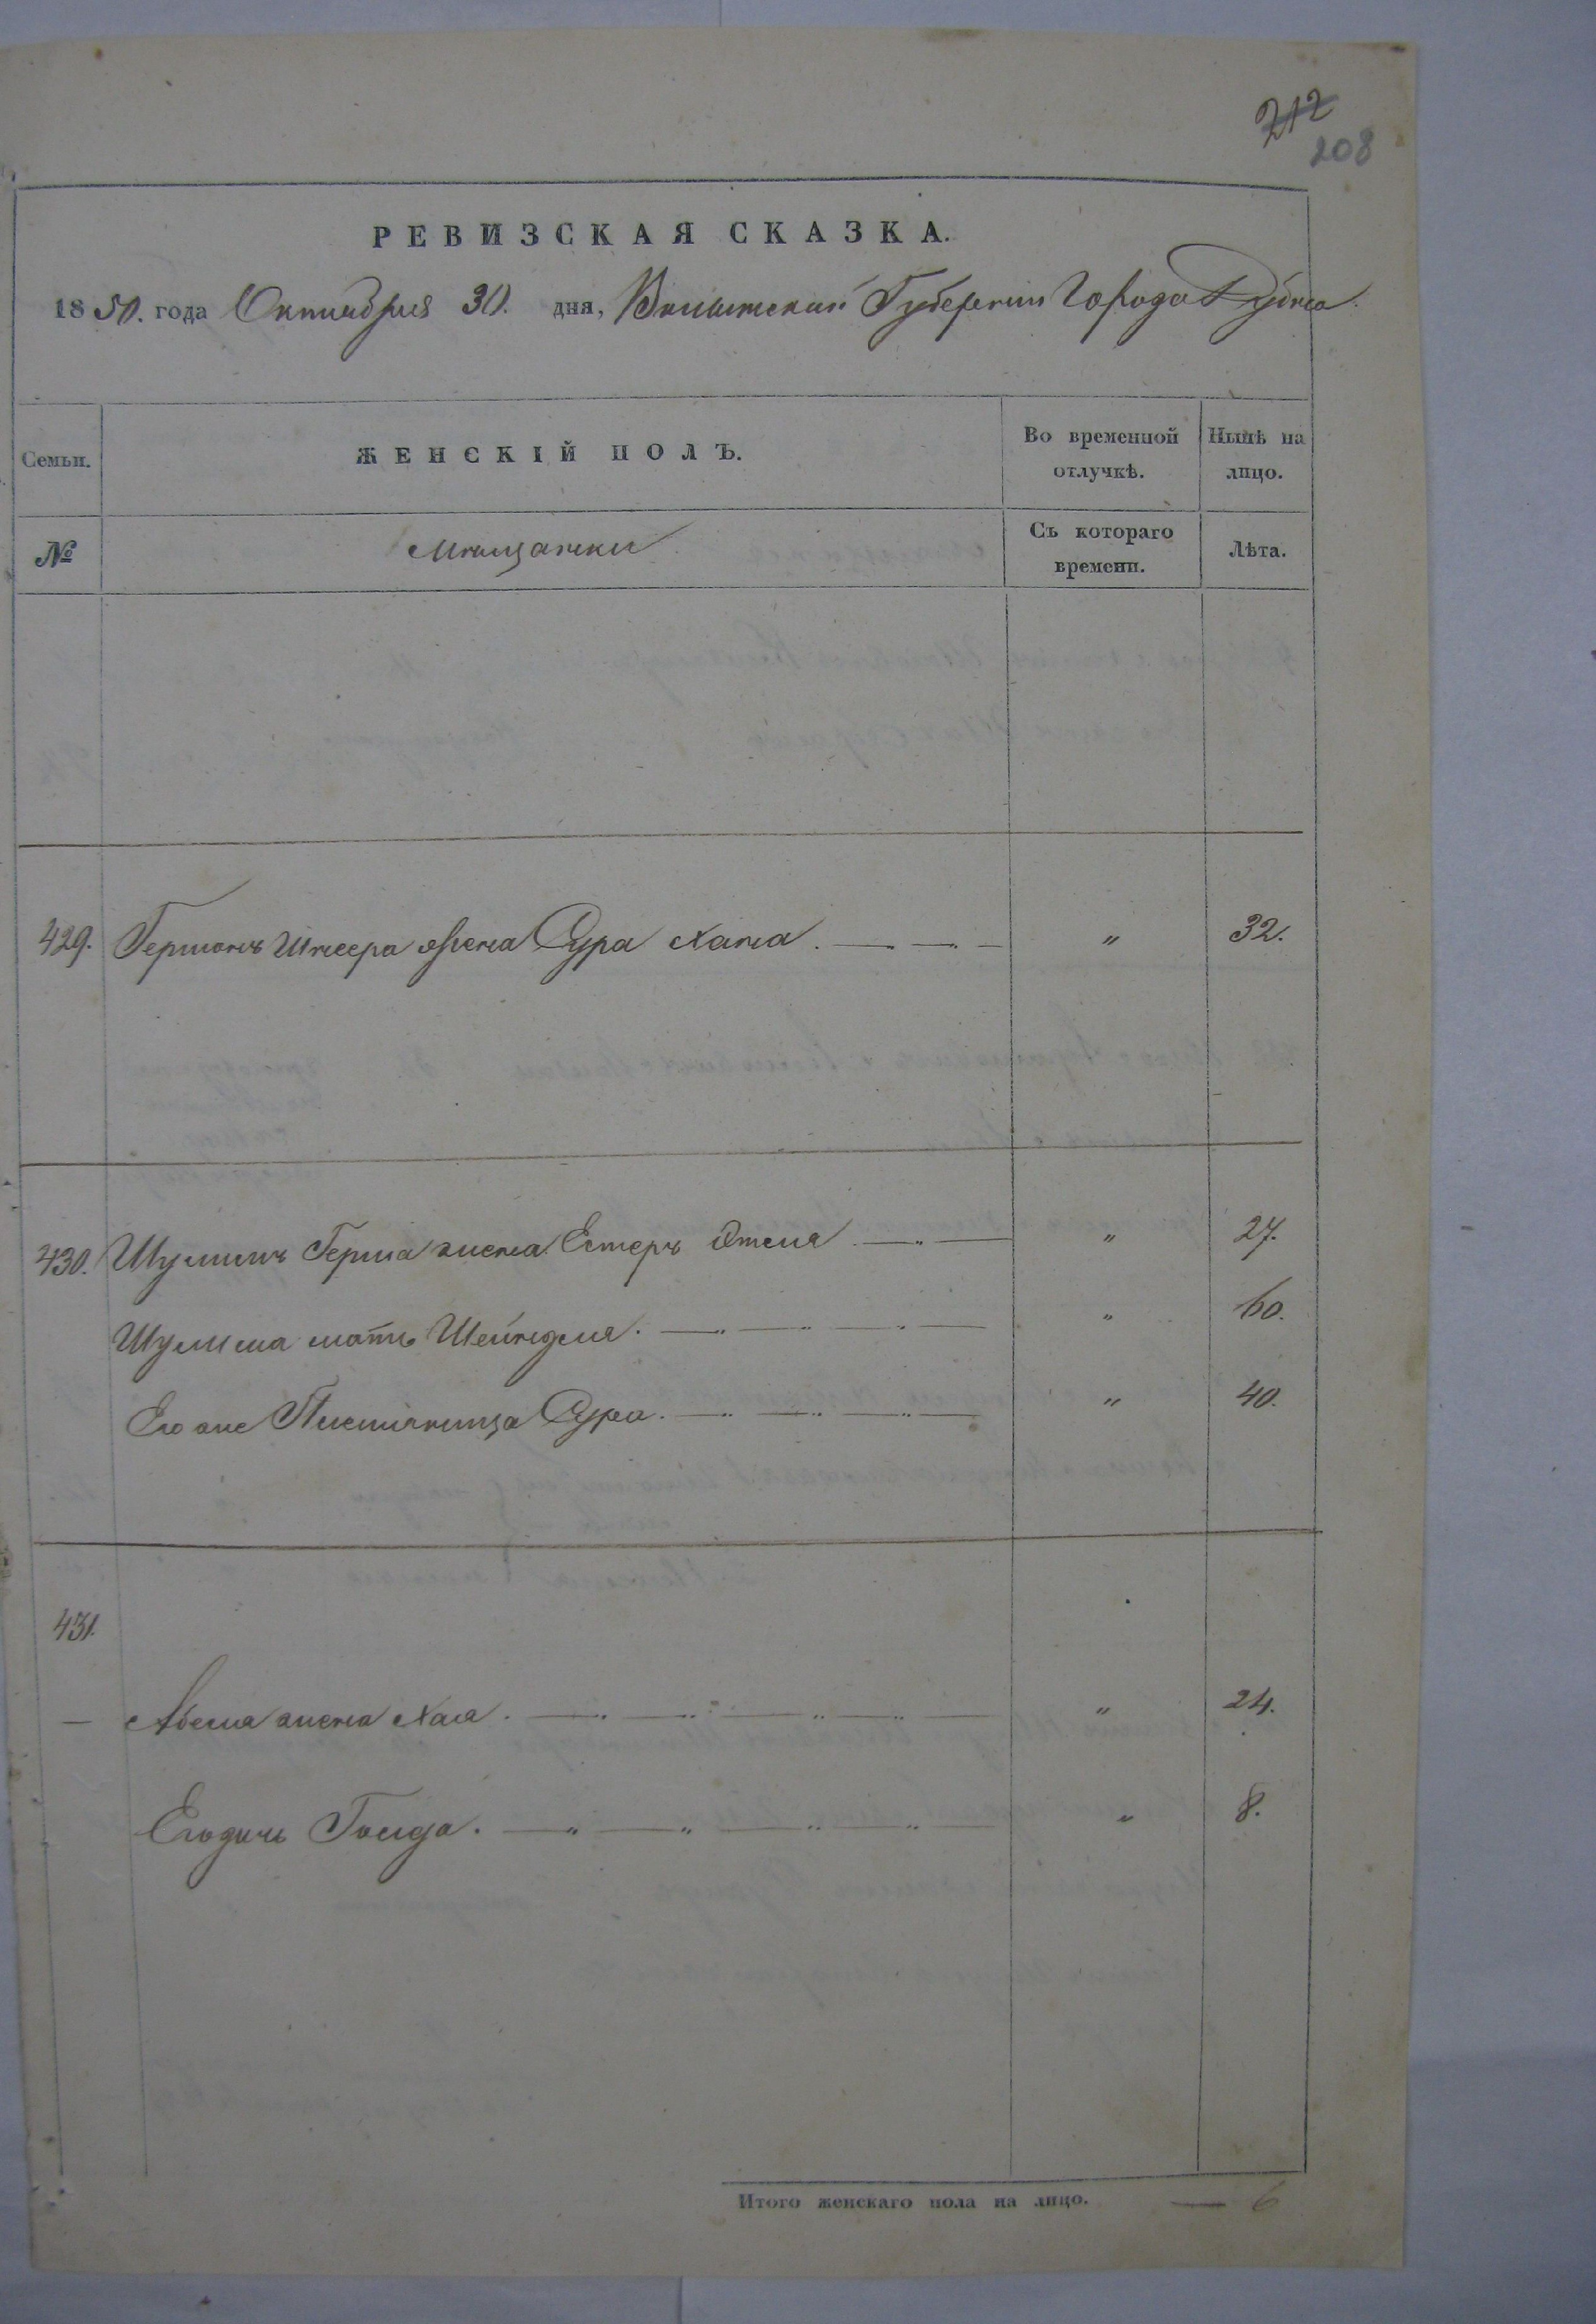 212
208
РЕВИЗСКАЯ СКАЗКА.
1850. года Октября 30. дня, Волынской Губернии Города Дубна.
Семьи.
ЖЕНСКІЙ ПОЛЪ.
Во временной отлучкѣ.
Нынѣ на лицо.
№
Мѣщанки
Съ котораго времени.
Лѣта.
429. Гершонъ жена Сура Хана. — „ — „ — „ 32.
430. Шулимъ Герша жена Естеръ Этля — „ — „ 27.
Шулима мать Шейндля. — „ — „ — „ — „ 60.
Его же Племяница Сура. — „ — „ — „ — „ 40.
431.
— Абеля жена Хая. — „ — „ — „ — „ — „ 24.
Его дочь Голда. — „ — „ — „ — „ — „ 8.
Итого женскаго пола на лицо. — 6